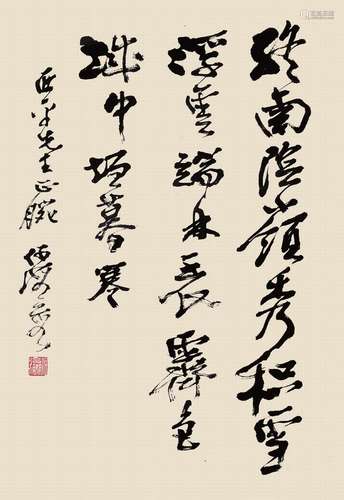 終南陰嶺秀积雪
浮雲端林表霽色
城中增暮寒
平先生正腕